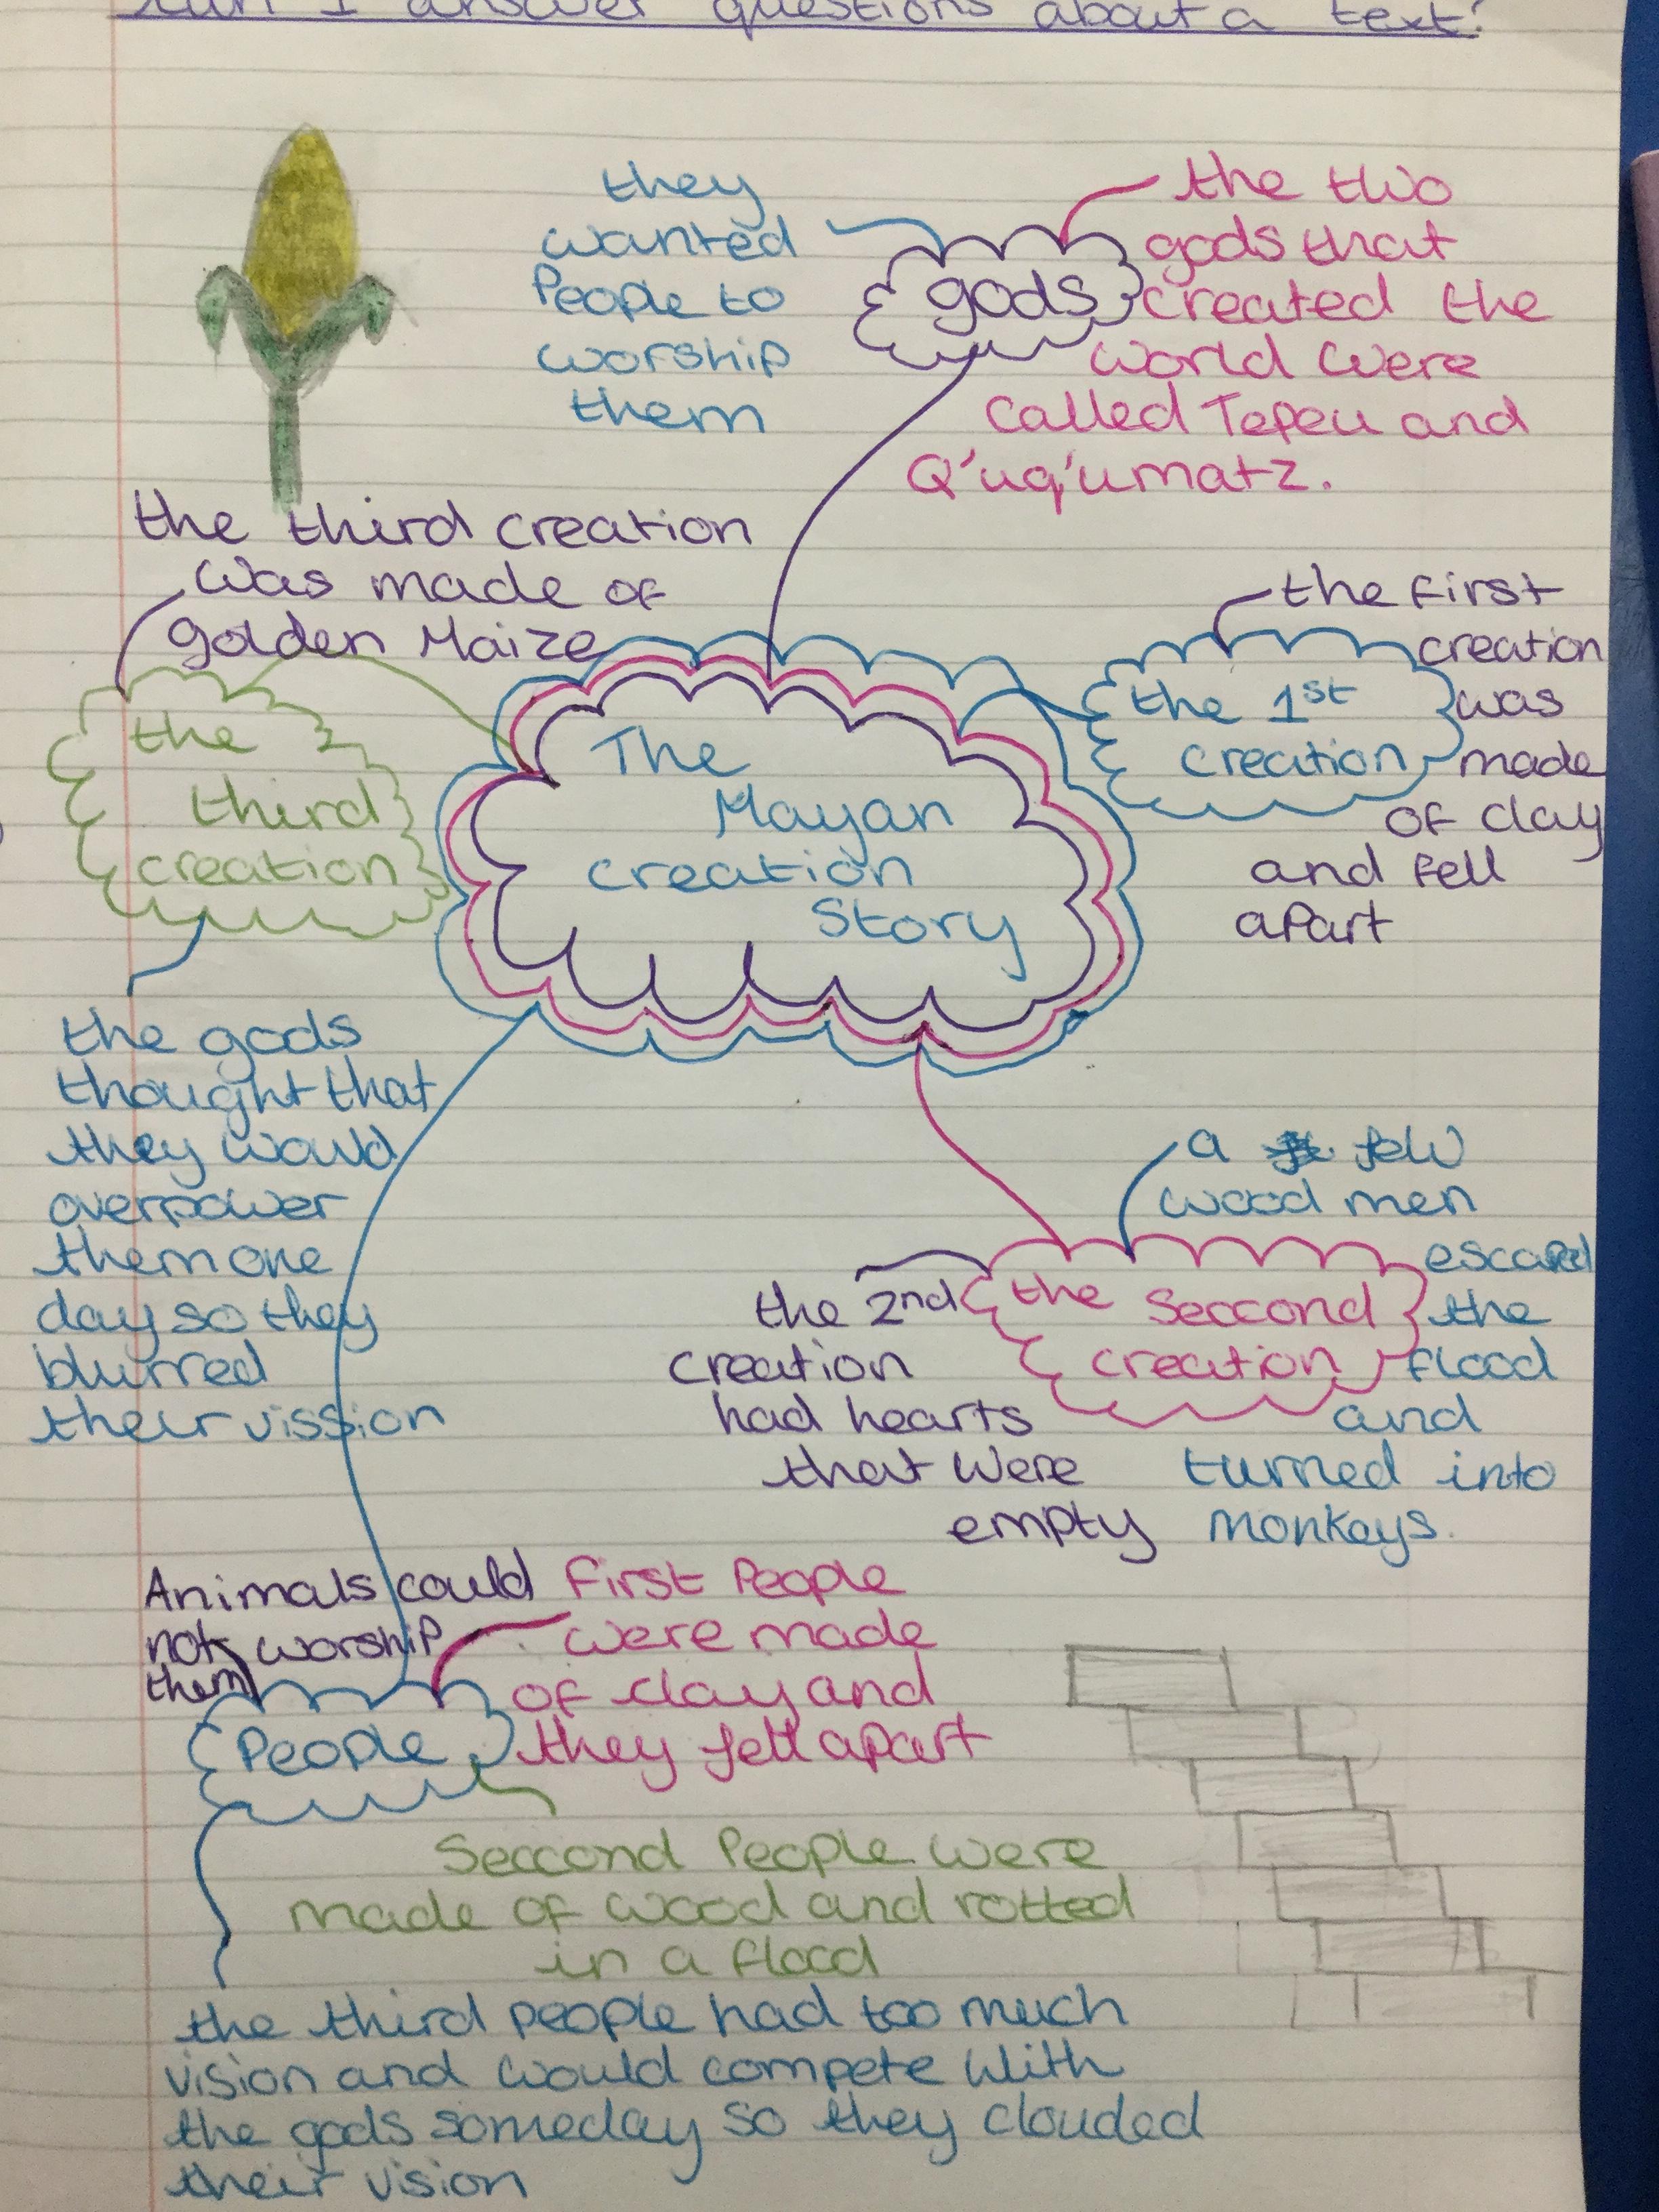 Can I answer questions about a text?
they
wanted
People to
worship
them
gods
the two
gods that
created the
world were
called Tepeu and
Q'uq'umatz.
the third creation
was made of
golden Maize
the
third
creation
The
Mayan
creation
Story
the 1st
creation
the first
creation
was
made
of clay
and fell
apart
the gods
thought that
they would
overpower
them one
day so they
blurred
their vission
a few
wood men
escaped
the
flood
and
turned into
monkeys.
the seccond
creation
the 2nd
creation
had hearts
that were
empty
Animals could
not worship
them
People
First People
were made
of clay and
they fell apart
Seccond People were
made of wood and rotted
in a flood
the third people had too much
vision and would compete with
the gods someday so they clouded
their vision